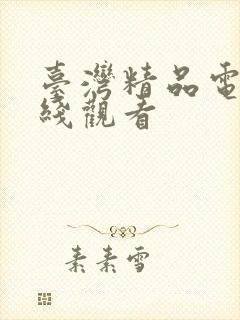 臺灣精品電
綫觀看
素素雪